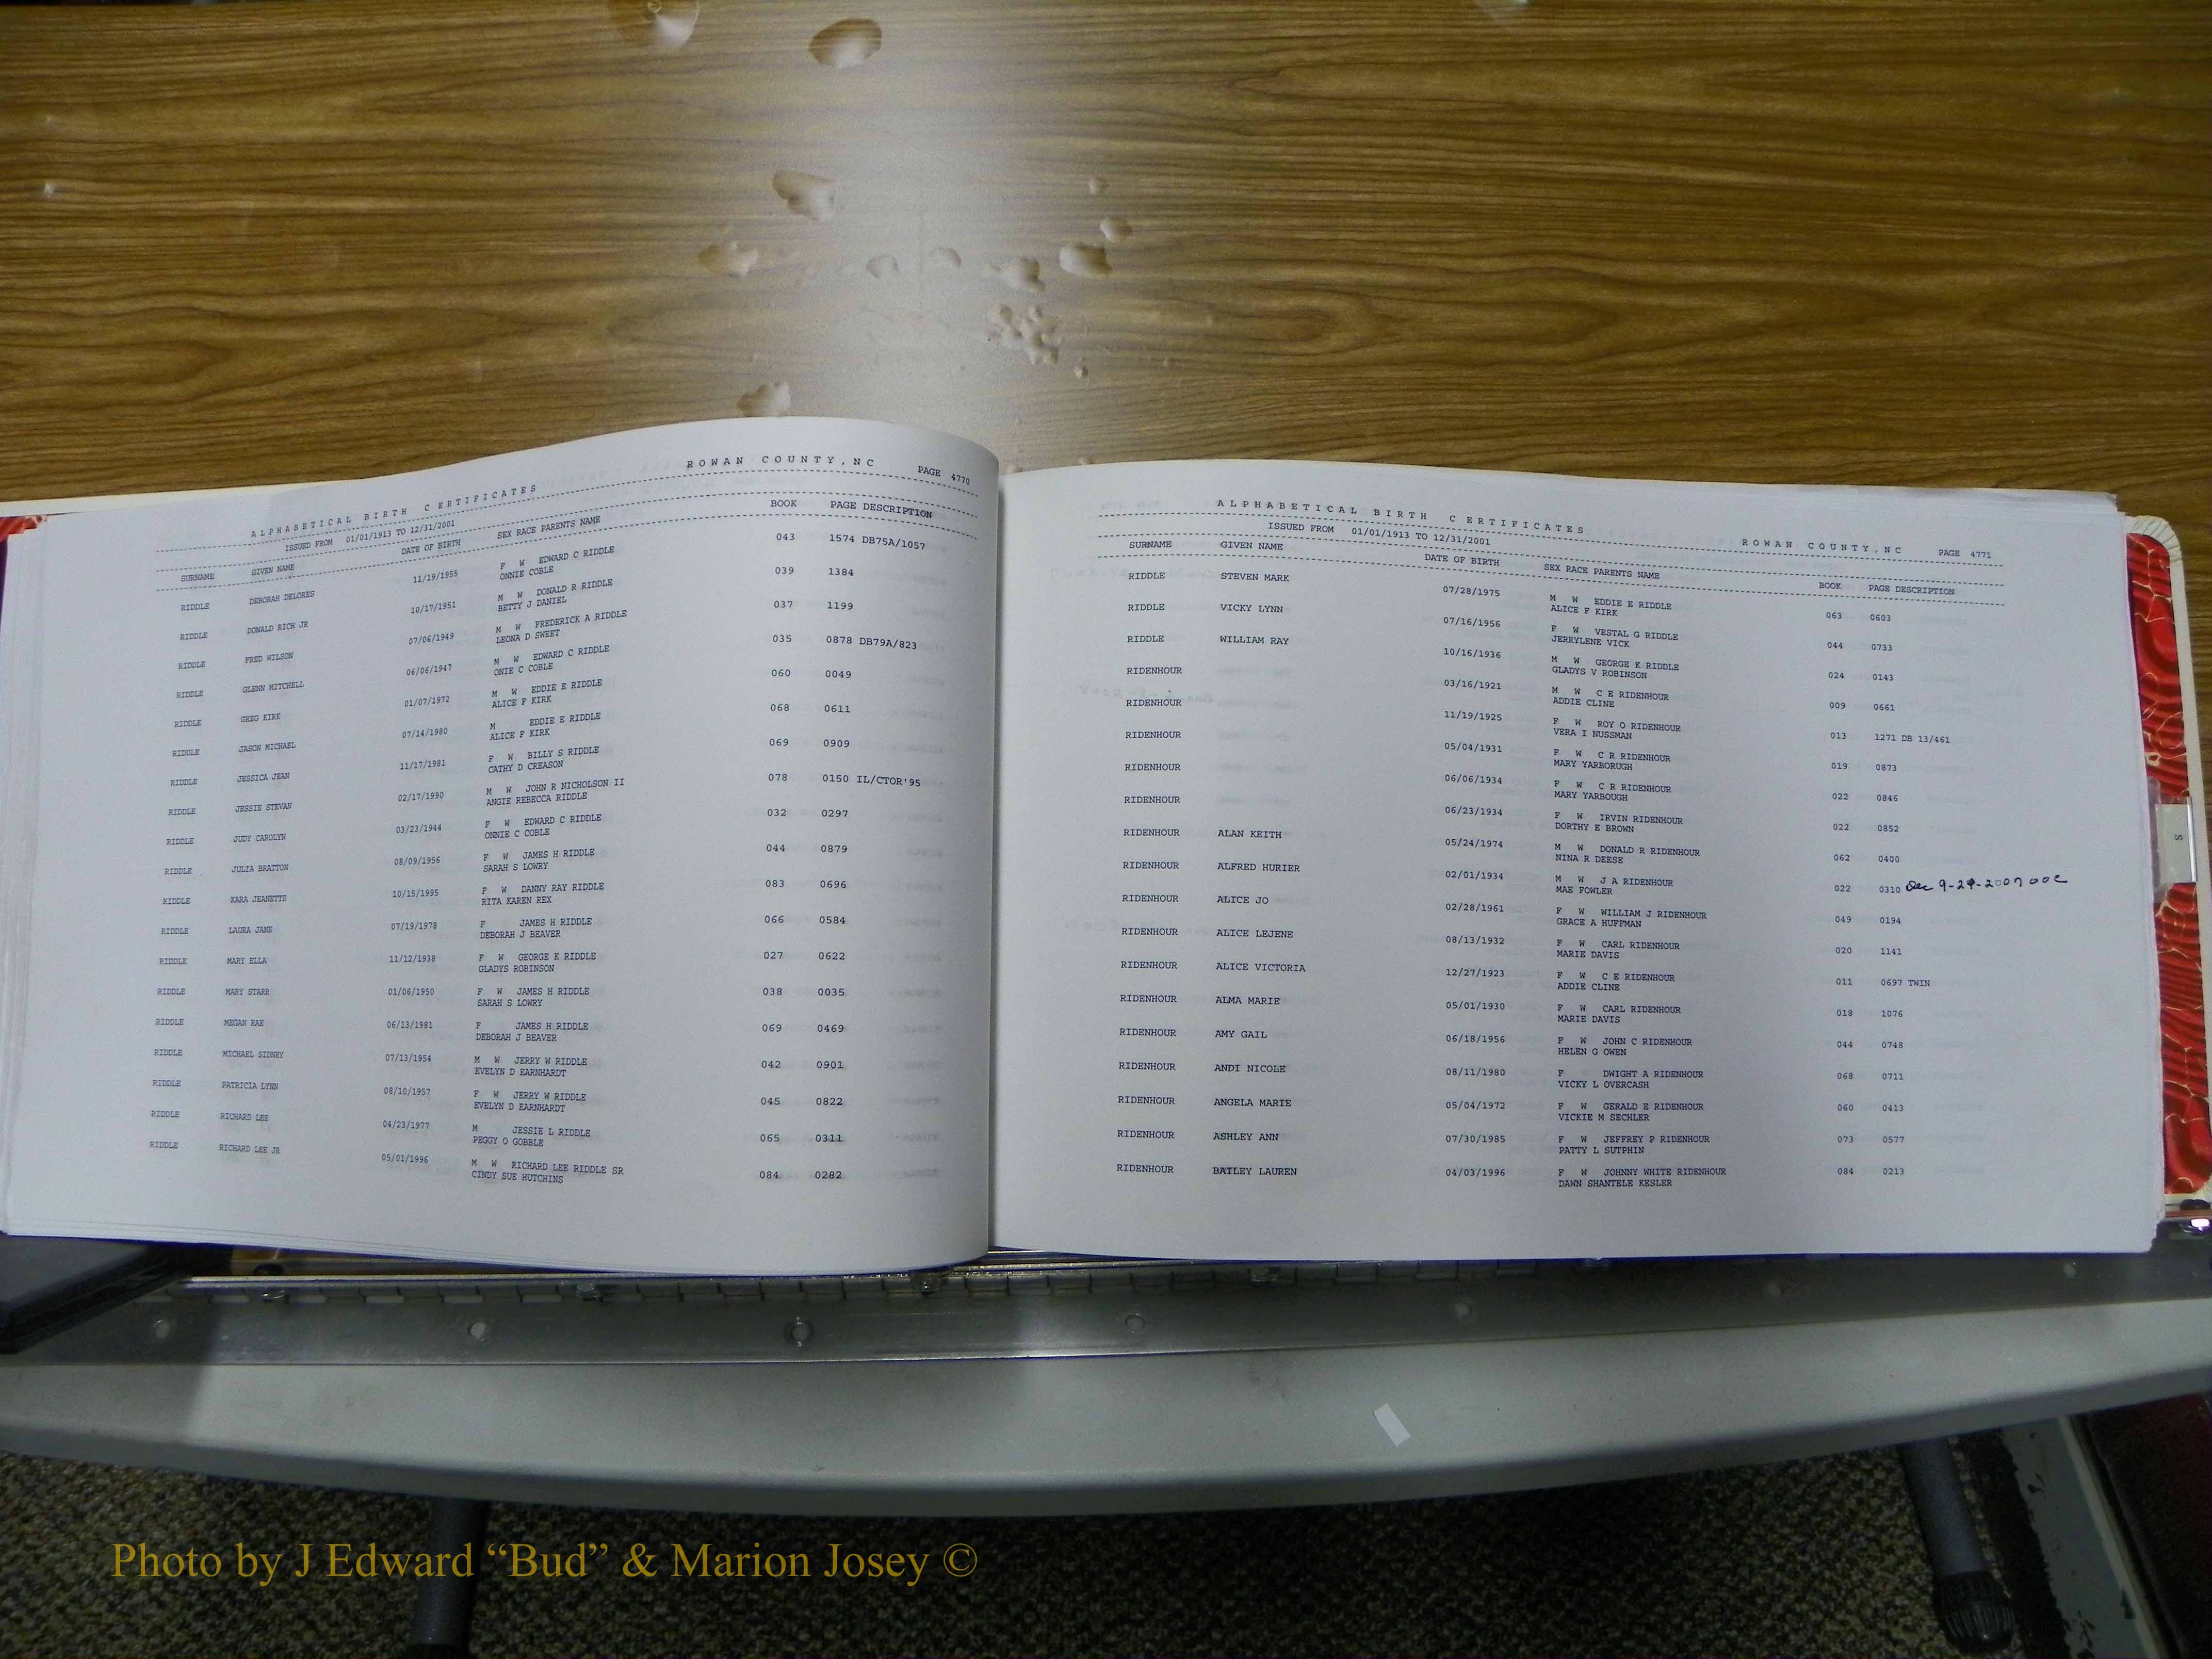 ALPHABETICAL BIRTH CERTIFICATES ROWAN COUNTY,NC PAGE 4770
ISSUED FROM 01/01/1913 TO 12/31/2001
SURNAME GIVEN NAME DATE OF BIRTH SEX RACE PARENTS NAME BOOK PAGE DESCRIPTION
RIDDLE DEBORAH DELORES 11/19/1955 F W EDWARD C RIDDLE 043 1574 DB75A/1057
ONNIE COBLE
RIDDLE DONALD RICH JR 10/17/1951 M W DONALD R RIDDLE 039 1384
BETTY J DANIEL
RIDDLE FRED WILSON 07/06/1949 M W FREDERICK A RIDDLE 037 1199
LEONA D SWEET
RIDDLE GLENN MITCHELL 06/06/1947 M W EDWARD C RIDDLE 035 0878 DB79A/823
ONIE C COBLE
RIDDLE GREG KIRK 01/07/1972 M W EDDIE E RIDDLE 060 0049
ALICE F KIRK
RIDDLE JASON MICHAEL 07/14/1980 M EDDIE E RIDDLE 068 0611
ALICE F KIRK
RIDDLE JESSICA JEAN 11/17/1981 F W BILLY S RIDDLE 069 0909
CATHY D CREASON
RIDDLE JESSIE STEVAN 02/17/1990 M W JOHN R NICHOLSON II 078 0150 IL/CTOR'95
ANGIE REBECCA RIDDLE
RIDDLE JUDY CAROLYN 03/23/1944 F W EDWARD C RIDDLE 032 0297
ONNIE C COBLE
RIDDLE JULIA BRATTON 08/09/1956 F W JAMES H RIDDLE 044 0879
SARAH S LOWRY
RIDDLE KARA JEANETTE 10/15/1995 F W DANNY RAY RIDDLE 083 0696
RITA KAREN REX
RIDDLE LAURA JANE 07/19/1978 F JAMES H RIDDLE 066 0584
DEBORAH J BEAVER
RIDDLE MARY ELLA 11/12/1938 F W GEORGE K RIDDLE 027 0622
GLADYS ROBINSON
RIDDLE MARY STARR 01/06/1950 F W JAMES H RIDDLE 038 0035
SARAH S LOWRY
RIDDLE MEGAN RAE 06/13/1981 F JAMES H RIDDLE 069 0469
DEBORAH J BEAVER
RIDDLE MICHAEL SIDNEY 07/13/1954 M W JERRY W RIDDLE 042 0901
EVELYN D EARNHARDT
RIDDLE PATRICIA LYNN 08/10/1957 F W JERRY W RIDDLE 045 0822
EVELYN D EARNHARDT
RIDDLE RICHARD LEE 04/23/1977 M JESSIE L RIDDLE 065 0311
PEGGY O GOBBLE
RIDDLE RICHARD LEE JR 05/01/1996 M W RICHARD LEE RIDDLE SR 084 0282
CINDY SUE HUTCHINS
ALPHABETICAL BIRTH CERTIFICATES ROWAN COUNTY,NC PAGE 4771
ISSUED FROM 01/01/1913 TO 12/31/2001
SURNAME GIVEN NAME DATE OF BIRTH SEX RACE PARENTS NAME BOOK PAGE DESCRIPTION
RIDDLE STEVEN MARK 07/28/1975 M W EDDIE E RIDDLE 063 0603
ALICE F KIRK
RIDDLE VICKY LYNN 07/16/1956 F W VESTAL G RIDDLE 044 0733
JERRYLENE VICK
RIDDLE WILLIAM RAY 10/16/1936 M W GEORGE K RIDDLE 024 0143
GLADYS V ROBINSON
RIDENHOUR 03/16/1921 M W C E RIDENHOUR 009 0661
ADDIE CLINE
RIDENHOUR 11/19/1925 F W ROY O RIDENHOUR 013 1271 DB 13/461
VERA I NUSSMAN
RIDENHOUR 05/04/1931 F W C R RIDENHOUR 019 0873
MARY YARBORUGH
RIDENHOUR 06/06/1934 F W C R RIDENHOUR 022 0846
MARY YARBOUGH
RIDENHOUR 06/23/1934 F W IRVIN RIDENHOUR 022 0852
DORTHY E BROWN
RIDENHOUR ALAN KEITH 05/24/1974 M W DONALD R RIDENHOUR 062 0400
NINA R DEESE
RIDENHOUR ALFRED HURIER 02/01/1934 M W J A RIDENHOUR 022 0310 Dec 9-29-2007
MAE FOWLER
RIDENHOUR ALICE JO 02/28/1961 F W WILLIAM J RIDENHOUR 049 0194
GRACE A HUFFMAN
RIDENHOUR ALICE LEJENE 08/13/1932 F W CARL RIDENHOUR 020 1141
MARIE DAVIS
RIDENHOUR ALICE VICTORIA 12/27/1923 F W C E RIDENHOUR 011 0697 TWIN
ADDIE CLINE
RIDENHOUR ALMA MARIE 05/01/1930 F W CARL RIDENHOUR 018 1076
MARIE DAVIS
RIDENHOUR AMY GAIL 06/18/1956 F W JOHN C RIDENHOUR 044 0748
HELEN G OWEN
RIDENHOUR ANDI NICOLE 08/11/1980 F DWIGHT A RIDENHOUR 068 0711
VICKY L OVERCASH
RIDENHOUR ANGELA MARIE 05/04/1972 F W GERALD E RIDENHOUR 060 0413
VICKIE M SECHLER
RIDENHOUR ASHLEY ANN 07/30/1985 F W JEFFREY P RIDENHOUR 073 0577
PATTY L SUTPHIN
RIDENHOUR BAILEY LAUREN 04/03/1996 F W JOHNNY WHITE RIDENHOUR 084 0213
DAWN SHANTELE KESLER
S
Photo by J Edward “Bud” & Marion Josey ©